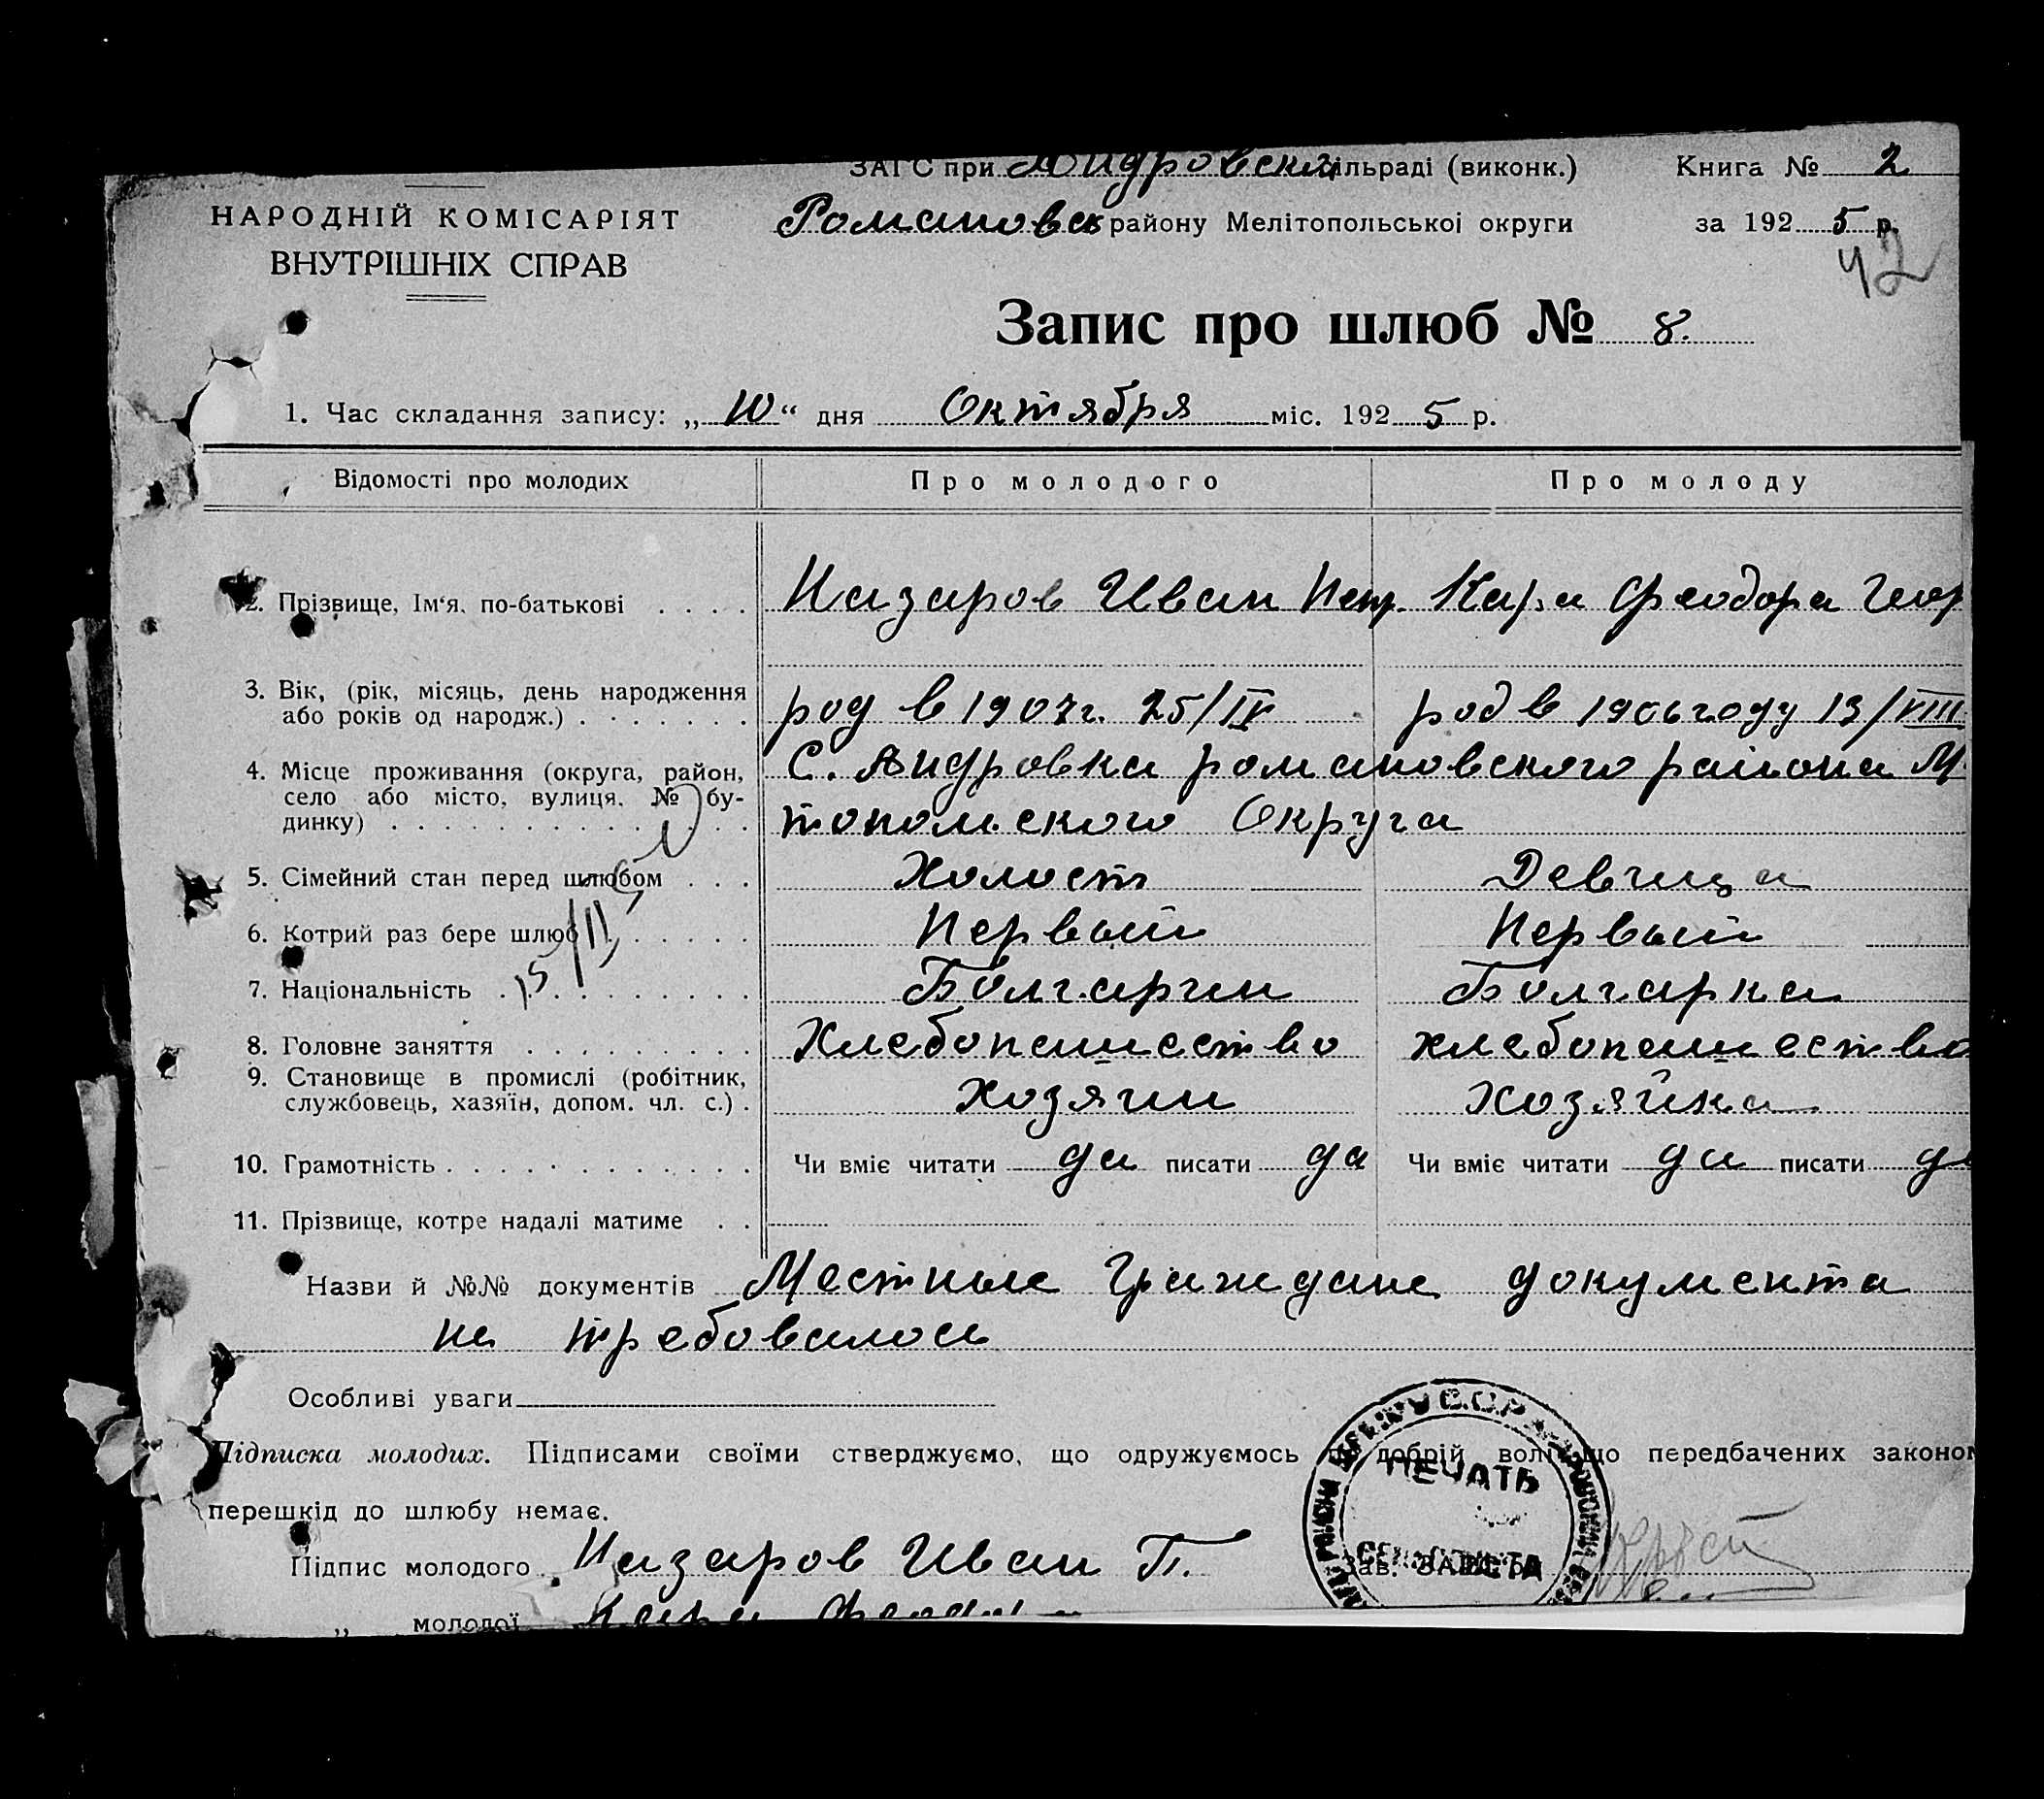 ЗАГС при Андровский сільраді (виконк.) Книга № 2
НАРОДНІЙ КОМІСАРІЯТ Романовск району Мелітопольської округи за 1925 р.
ВНУТРІШНІХ СПРАВ 42
Запис про шлюб № 8.
1. Час складання запису: „10“ дня Октября міс. 1925 р.
Відомості про молодих Про молодого Про молоду
2. Прізвище, Ім‘я, по-батькові . . . . Назаров Иван Петр. Кара Феодора Геор
3. Вік, (рік, місяць, день народження
або років од народж.) . . . . . . . род в 1907г. 25/IV род в 1906 году 13/VIII
4. Місце проживання (округа, район, С. Андровка романовского района М
село або місто, вулиця, № бу-
динку) . . . . . . . . . . . . . топольского Округа
5. Сімейний стан перед шлюбом . . . Холост Девица
6. Котрий раз бере шлюб . . . . . . Первый Первый
15/II
7. Національність . . . . . . . . . . Болгарин Болгарка
8. Головне заняття . . . . . . . . . Хлебопашество хлебопашество
9. Становище в промислі (робітник,
службовець, хазяїн, допом. чл. с.) . Хозяин Хозяйка
10. Грамотність . . . . . . . . . . . . Чи вміє читати да писати да Чи вміє читати да писати да
11. Прізвище, котре надалі матиме . .
Назви й №№ документів Местные Граждане документа
не требовалось
Особливі уваги
Підписка молодих. Підписами своїми стверджуємо, що одружуємось по добрій волі, що передбачених законом
перешкід до шлюбу немає.
ПЕЧАТЬ
Підпис молодого Назаров Иван П. Зав. ЗАГС
„ молодої Кара Феодора